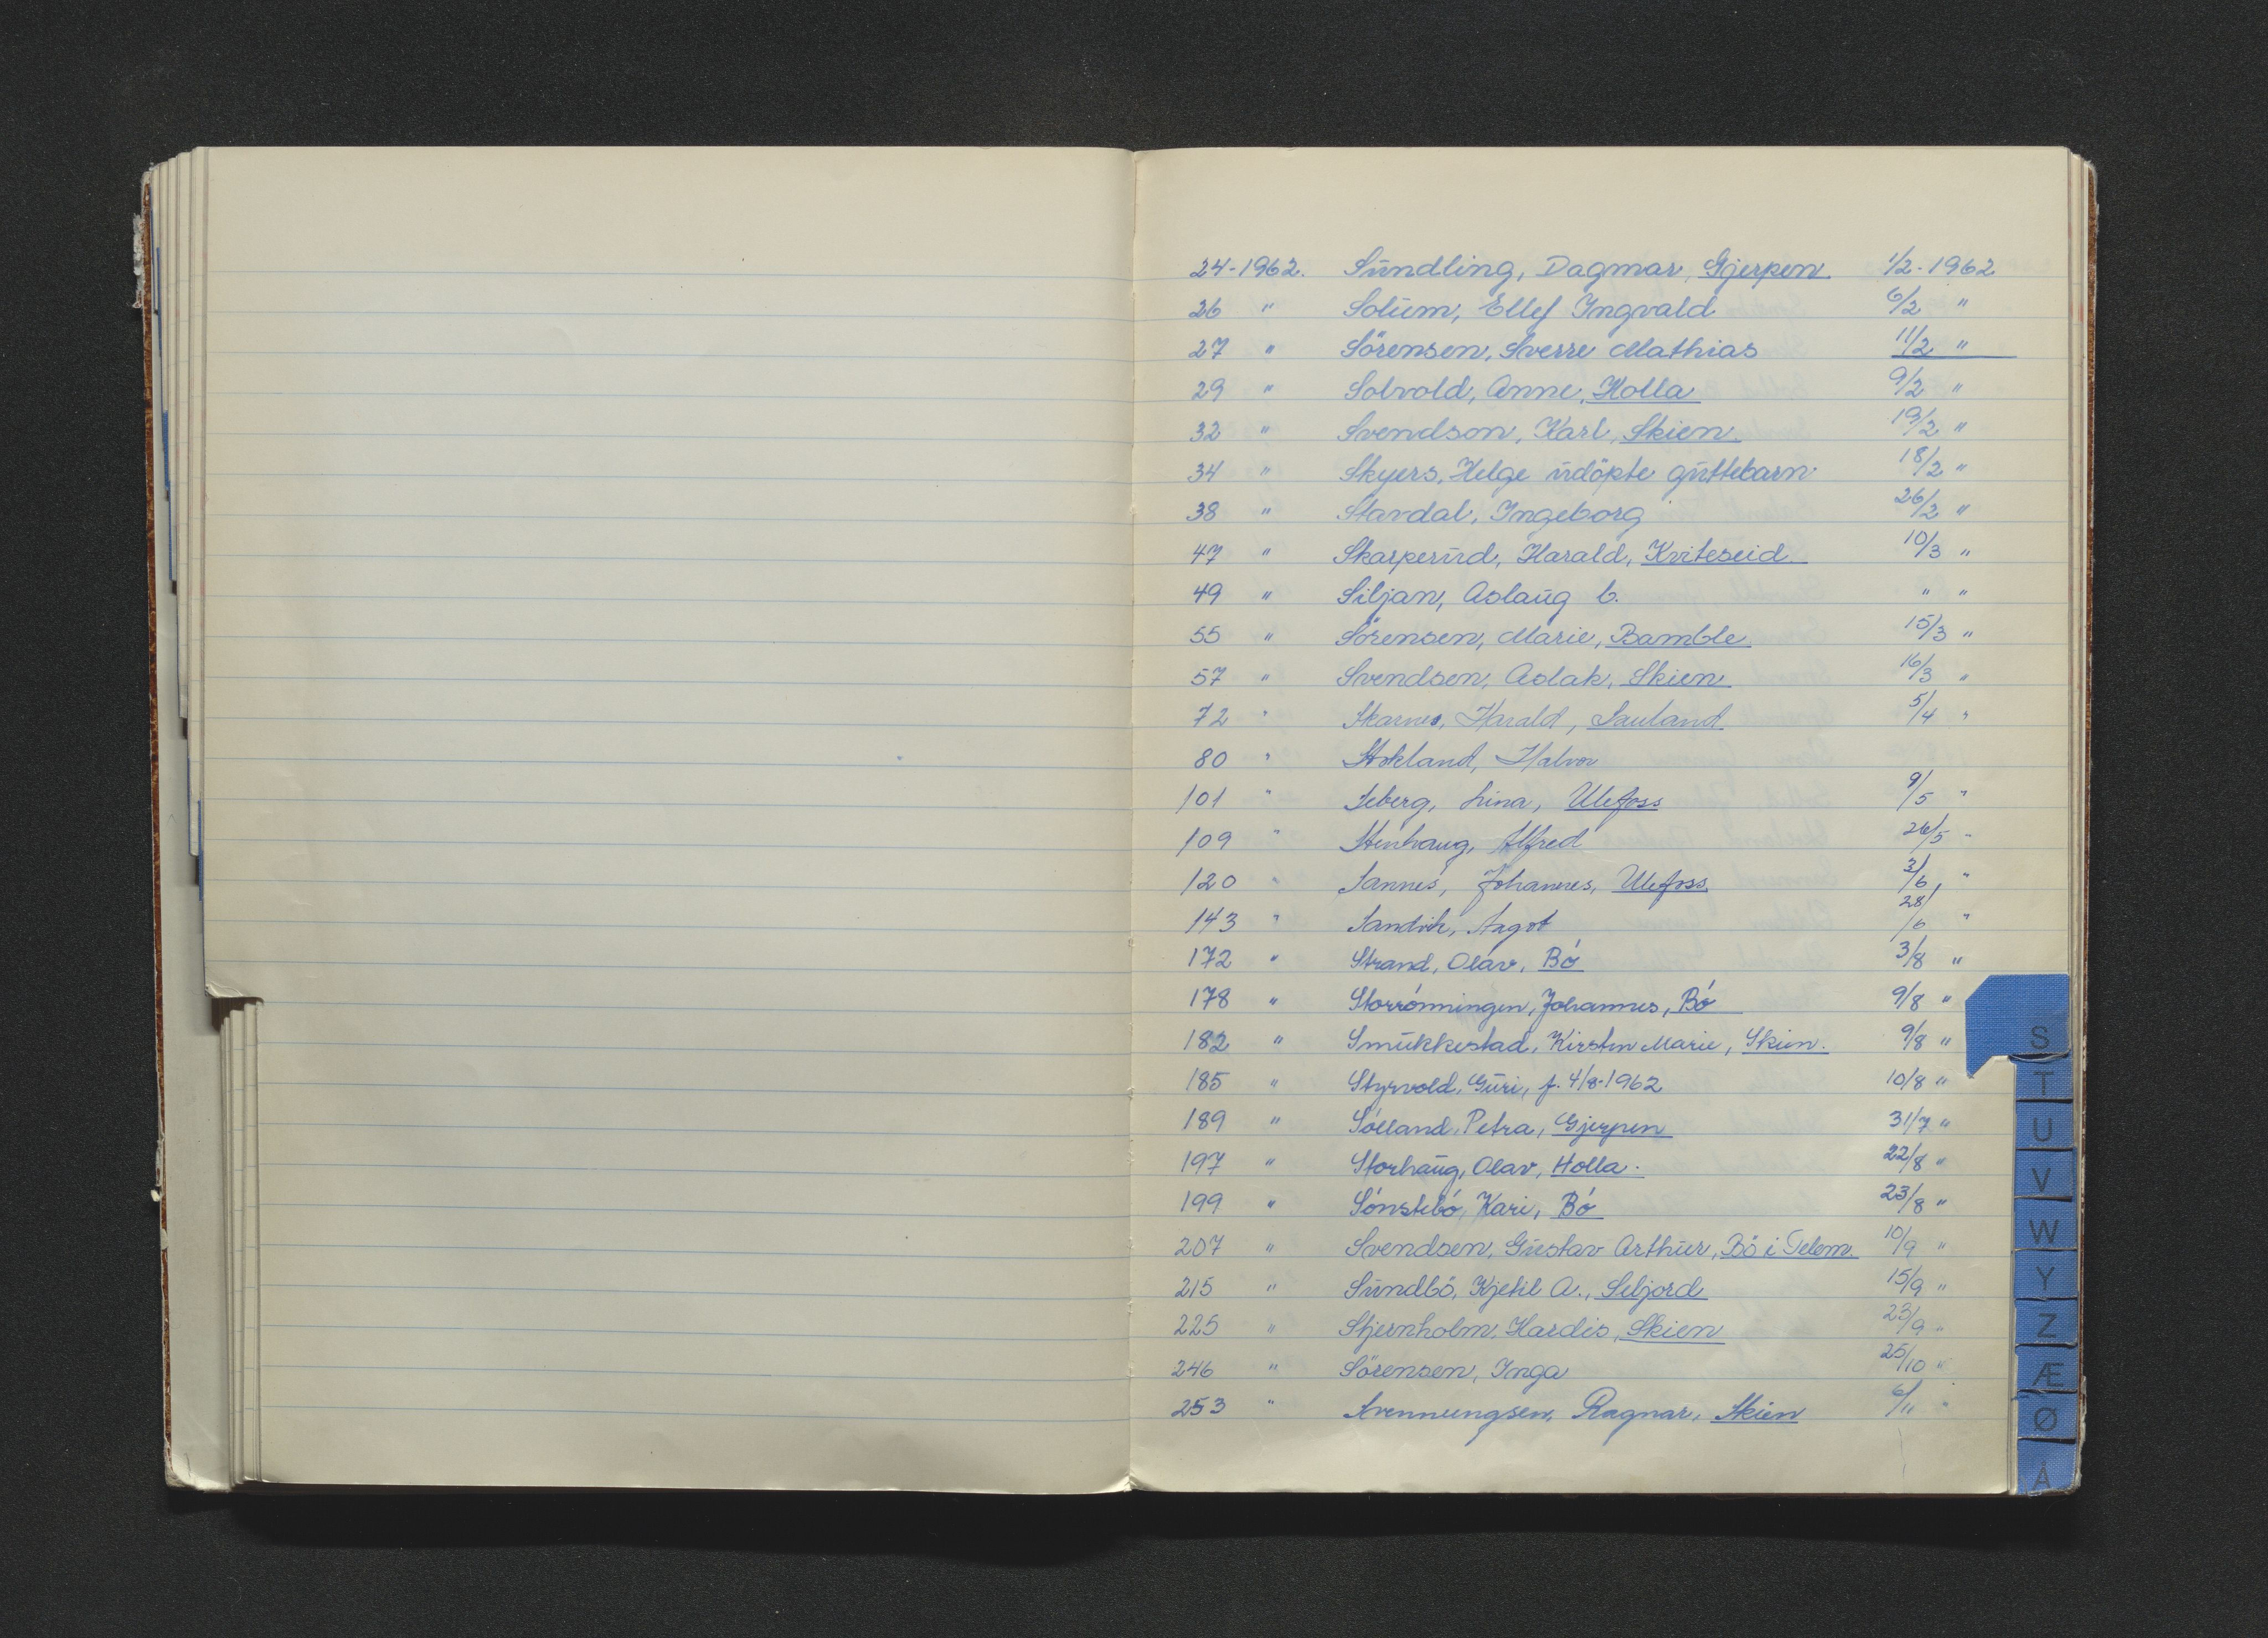 24-1962. Sundling, Dagmar, Gjerpen. 1/2-1962
26 " Solum, Ellef Ingvald 6/2 "
27 " Sörensen, Sverre Mathias 11/2 "
29 " Solvold, Anne, Holla 9/2 "
32 " Svendson, Karl, Skien. 19/2 "
34 " Skyers, Helge udöpte guttebarn 18/2 "
38 " Stavdal, Ingeborg 26/2 "
47 " Skarperud, Harald, Kviteseid. 10/3 "
49 " Siljan, Aslaug b. " "
55 " Sörensen, Marie, Bamble 15/3 "
57 " Svendsen, Aslak, Skien 16/3 "
72 " Skarnes, Harald, Sauland 5/4 "
80 " Stokland, Halvor
101 " Seberg, Lina, Ulefoss 9/5 "
109 " Stenhaug, Alfred 26/5 "
120 " Sannes, Johannes, Ulefoss, 3/6 "
143 " Sandvik, Aagot 28/6 "
172 " Strand, Olav, Bó 3/8 "
178 " Storrónningen, Johannes, Bó 9/8 "
182 " Smukkestad, Kirsten Marie, Skien. 9/8 "
185 " Styrvold, Guri, f. 4/8-1962 10/8 "
189 " Sólland, Petra, Gjerpen 31/7 "
197 " Storhaug, Olav, Holla. 22/8 "
199 " Sónstebó, Kari, Bó 23/8 "
207 " Svendsen, Gustav Arthur, Bö i Telem. 10/9 "
215 " Sundbö, Kjetil A., Seljord 15/9 "
225 " Stjernholm, Hardis, Skien 23/9 "
246 " Sörensen, Inga 25/10 "
253 " Svennungsen, Ragnar, Skien 6/11 "
S
T
U
V
W
Y
Z
Æ
Ø
Å